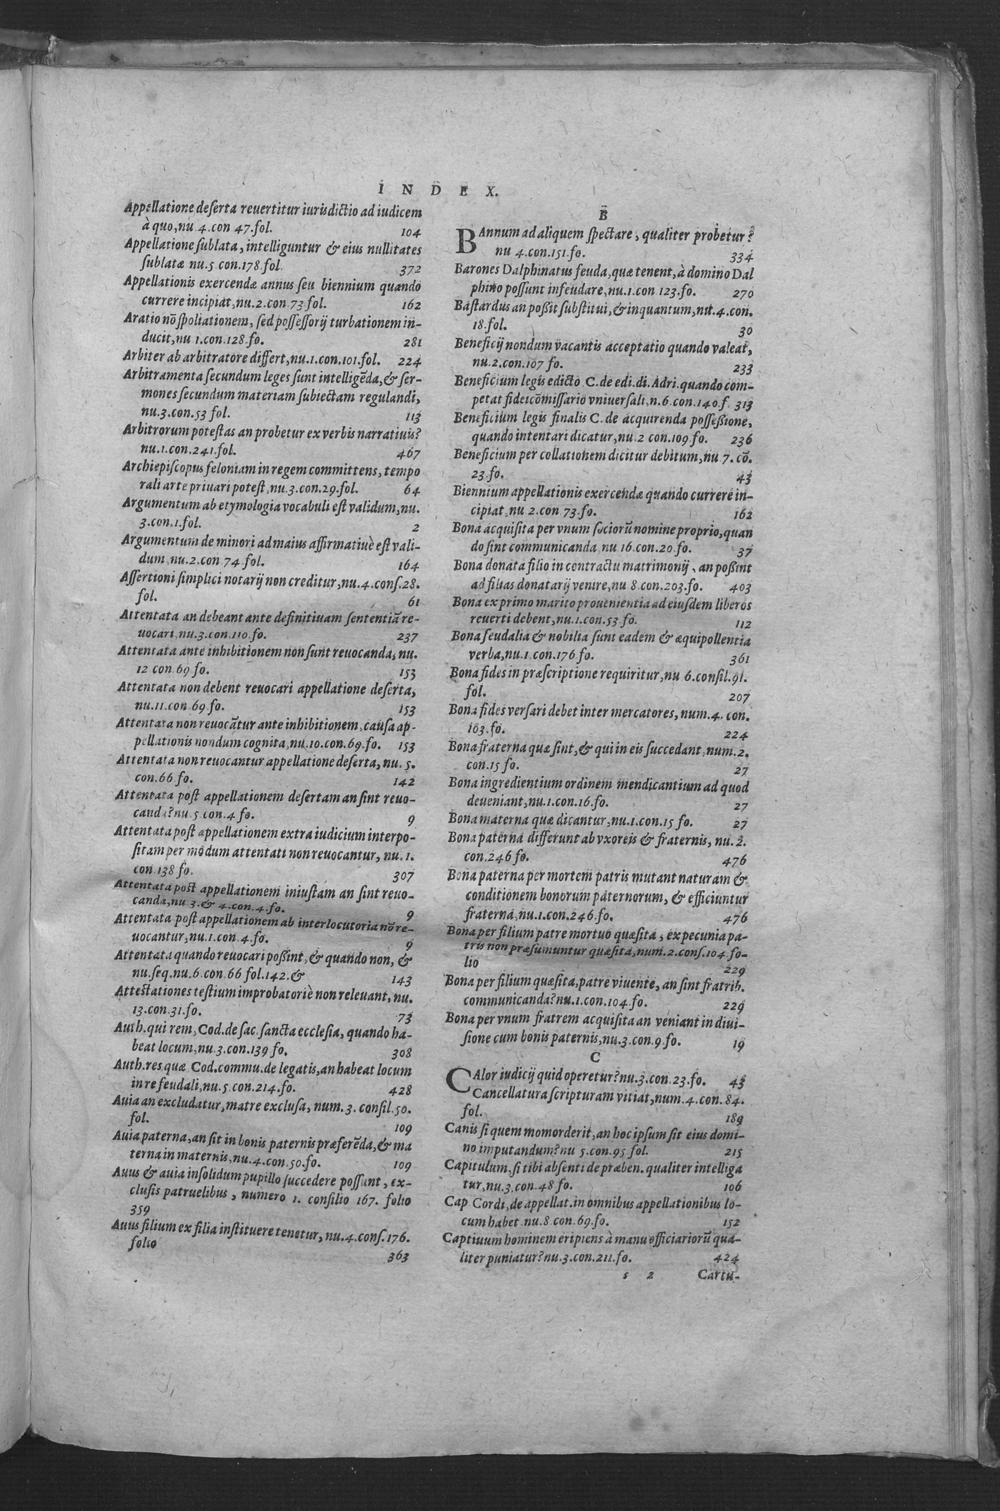 INDEX.
Appellatione deserta reuertitur iurisdictio ad iudicem
à quo, nu 4.con 47.fol. 104
Appellatione sublata, intelliguntur & eius nullitates
sublatæ nu.5 con.178.fol. 372
Appellationis exercendæ annus seu biennium quando
currere incipiat, nu.2.con 73 fol. 162
Aratio nō spoliationem, sed possessorij turbationem in-
ducit, nu 1.con.128.fo. 281
Arbiter ab arbitratore differt, nu.1.con.101.fol. 224
Arbitramenta secundum leges sunt intelligēda, & ser-
mones secundum materiam subiectam regulandi,
nu.3.con.53 fol. 113
Arbitrorum potestas an probetur ex verbis narratiuis?
nu.1.con.241.fol. 467
Archiepiscopus feloniam in regem committens, tempo
rali arte priuari potest, nu.3.con.29.fol. 64
Argumentum ab etymologia vocabuli est validum, nu.
3.con.1.fol. 2
Argumentum de minori ad maius affirmatiuè est vali-
dum, nu.2.con 74 fol. 164
Assertioni simplici notarij non creditur, nu.4.cons.28.
fol. 61
Attentata an debeant ante definitiuam sententiā re-
uocari, nu.3.con.110.fo. 237
Attentata ante inhibitionem non sunt reuocanda, nu.
12 con 69 fo. 153
Attentata non debent reuocari appellatione deserta,
nu.11.con 69.fo. 153
Attentata non reuocātur ante inhibitionem, causa ap-
pellationis nondum cognita, nu.10.con.69.fo. 153
Attentata non reuocantur appellatione deserta, nu. 5.
con.66 fo. 142
Attentata post appellationem desertam an sint reuo-
canda? nu 5 con.4 fo. 9
Attentata post appellationem extra iudicium interpo-
sitam per modum attentati non reuocantur, nu. 1.
con 138 fo. 307
Attentata post appellationem iniustam an sint reuo-
canda, nu 3.& 4.con.4.fo. 9
Attentata post appellationem ab interlocutoria nō re-
uocantur, nu.1.con.4.fo. 9
Attentata quando reuocari possint, & quando non, &
nu.seq.nu.6.con.66 fol.142.& 143
Attestationes testium improbatoriè non releuant, nu.
13.con.31.fo. 73
Auth. qui rem, Cod. de sac. sancta ecclesia, quando ha-
beat locum, nu.3.con.139 fo. 308
Auth. res quæ Cod. commu. de legatis, an habeat locum
in re feudali, nu.5 con.214.fo. 428
Auia an excludatur, matre exclusa, num.3. consil.50.
fol. 109
Auia paterna, an sit in bonis paternis præferēda, & ma
terna in maternis, nu.4.con.50.fo. 109
Auus & auia insolidum pupillo succedere possunt, ex-
clusis patruelibus, numero 1. consilio 167. folio
359
Auus filium ex filia instituere tenetur, nu.4.cons.176.
folio 363
B
BAnnum ad aliquem spectare, qualiter probetur?
nu 4.con.151.fo. 334
Barones Dalphinatus feuda, quæ tenent, à domino Dal
phino possunt infeudare, nu.1.con 123.fo. 270
Bastardus an possit substitui, & inquantum, nu.4.con.
18.fol. 30
Beneficij nondum vacantis acceptatio quando valeat,
nu.2.con.107 fo. 233
Beneficium legis edicto C. de edi. di. Adri. quando com-
petat fideicōmissario vniuersali, n.6.con.140.f. 313
Beneficium legis finalis C. de acquirenda possessione,
quando intentari dicatur, nu.2 con.109.fo. 236
Beneficium per collationem dicitur debitum, nu 7. cō.
23.fo. 43
Biennium appellationis exercendæ quando currere in-
cipiat, nu 2.con 73.fo. 162
Bona acquisita per vnum sociorū nomine proprio, quan
do sint communicanda, nu 16.con.20.fo. 37
Bona donata filio in contractu matrimonij, an possint
ad filias donatarij venire, nu 8.con.203.fo. 403
Bona ex primo marito prouenientia ad eiusdem liberos
reuerti debent, nu.1.con.53.fo. 112
Bona feudalia & nobilia sunt eadem & æquipollentia
verba, nu.1.con.176 fo. 361
Bona fides in præscriptione requiritur, nu 6.consil.91.
fol. 207
Bona fides versari debet inter mercatores, num.4. con.
103.fo. 224
Bona fraterna quæ sint, & qui in eis succedant, num.2.
con.15 fo. 27
Bona ingredientium ordinem mendicantium ad quod
deueniant, nu.1.con.16.fo. 27
Bona materna quæ dicantur, nu.1.con.15 fo. 27
Bona paterna differunt ab vxoreis & fraternis, nu. 2.
con.246 fo. 476
Bona paterna per mortem patris mutant naturam &
conditionem bonorum paternorum, & efficiuntur
fraterna, nu.1.con.246.fo. 476
Bona per filium patre mortuo quæsita, ex pecunia pa-
tris non præsumuntur quæsita, num.2.cons.104 fo-
lio 229
Bona per filium quæsita, patre viuente, an sint fratrib.
communicanda? nu.1.con.104.fo. 229
Bona per vnum fratrem acquisita an veniant in diui-
sione cum bonis paternis, nu.3.con.9.fo. 19
C
CAlor iudicij quid operetur? nu.3.con.23.fo. 43
Cancellatura scripturam vitiat, num.4.con. 84.
fol. 189
Canis si quem momorderit, an hoc ipsum sit eius domi-
no imputandum? nu 5.con.95 fol. 215
Capitulum, si tibi absenti de præben. qualiter intelliga
tur, nu.3.con.48 fo. 106
Cap Cordi, de appellat. in omnibus appellationibus lo-
cum habet nu.8 con.69.fo. 152
Captiuum hominem eripiens à manu officiariorū qua-
liter puniatur? nu.3.con.211.fo. 424
s 2 Cartu-